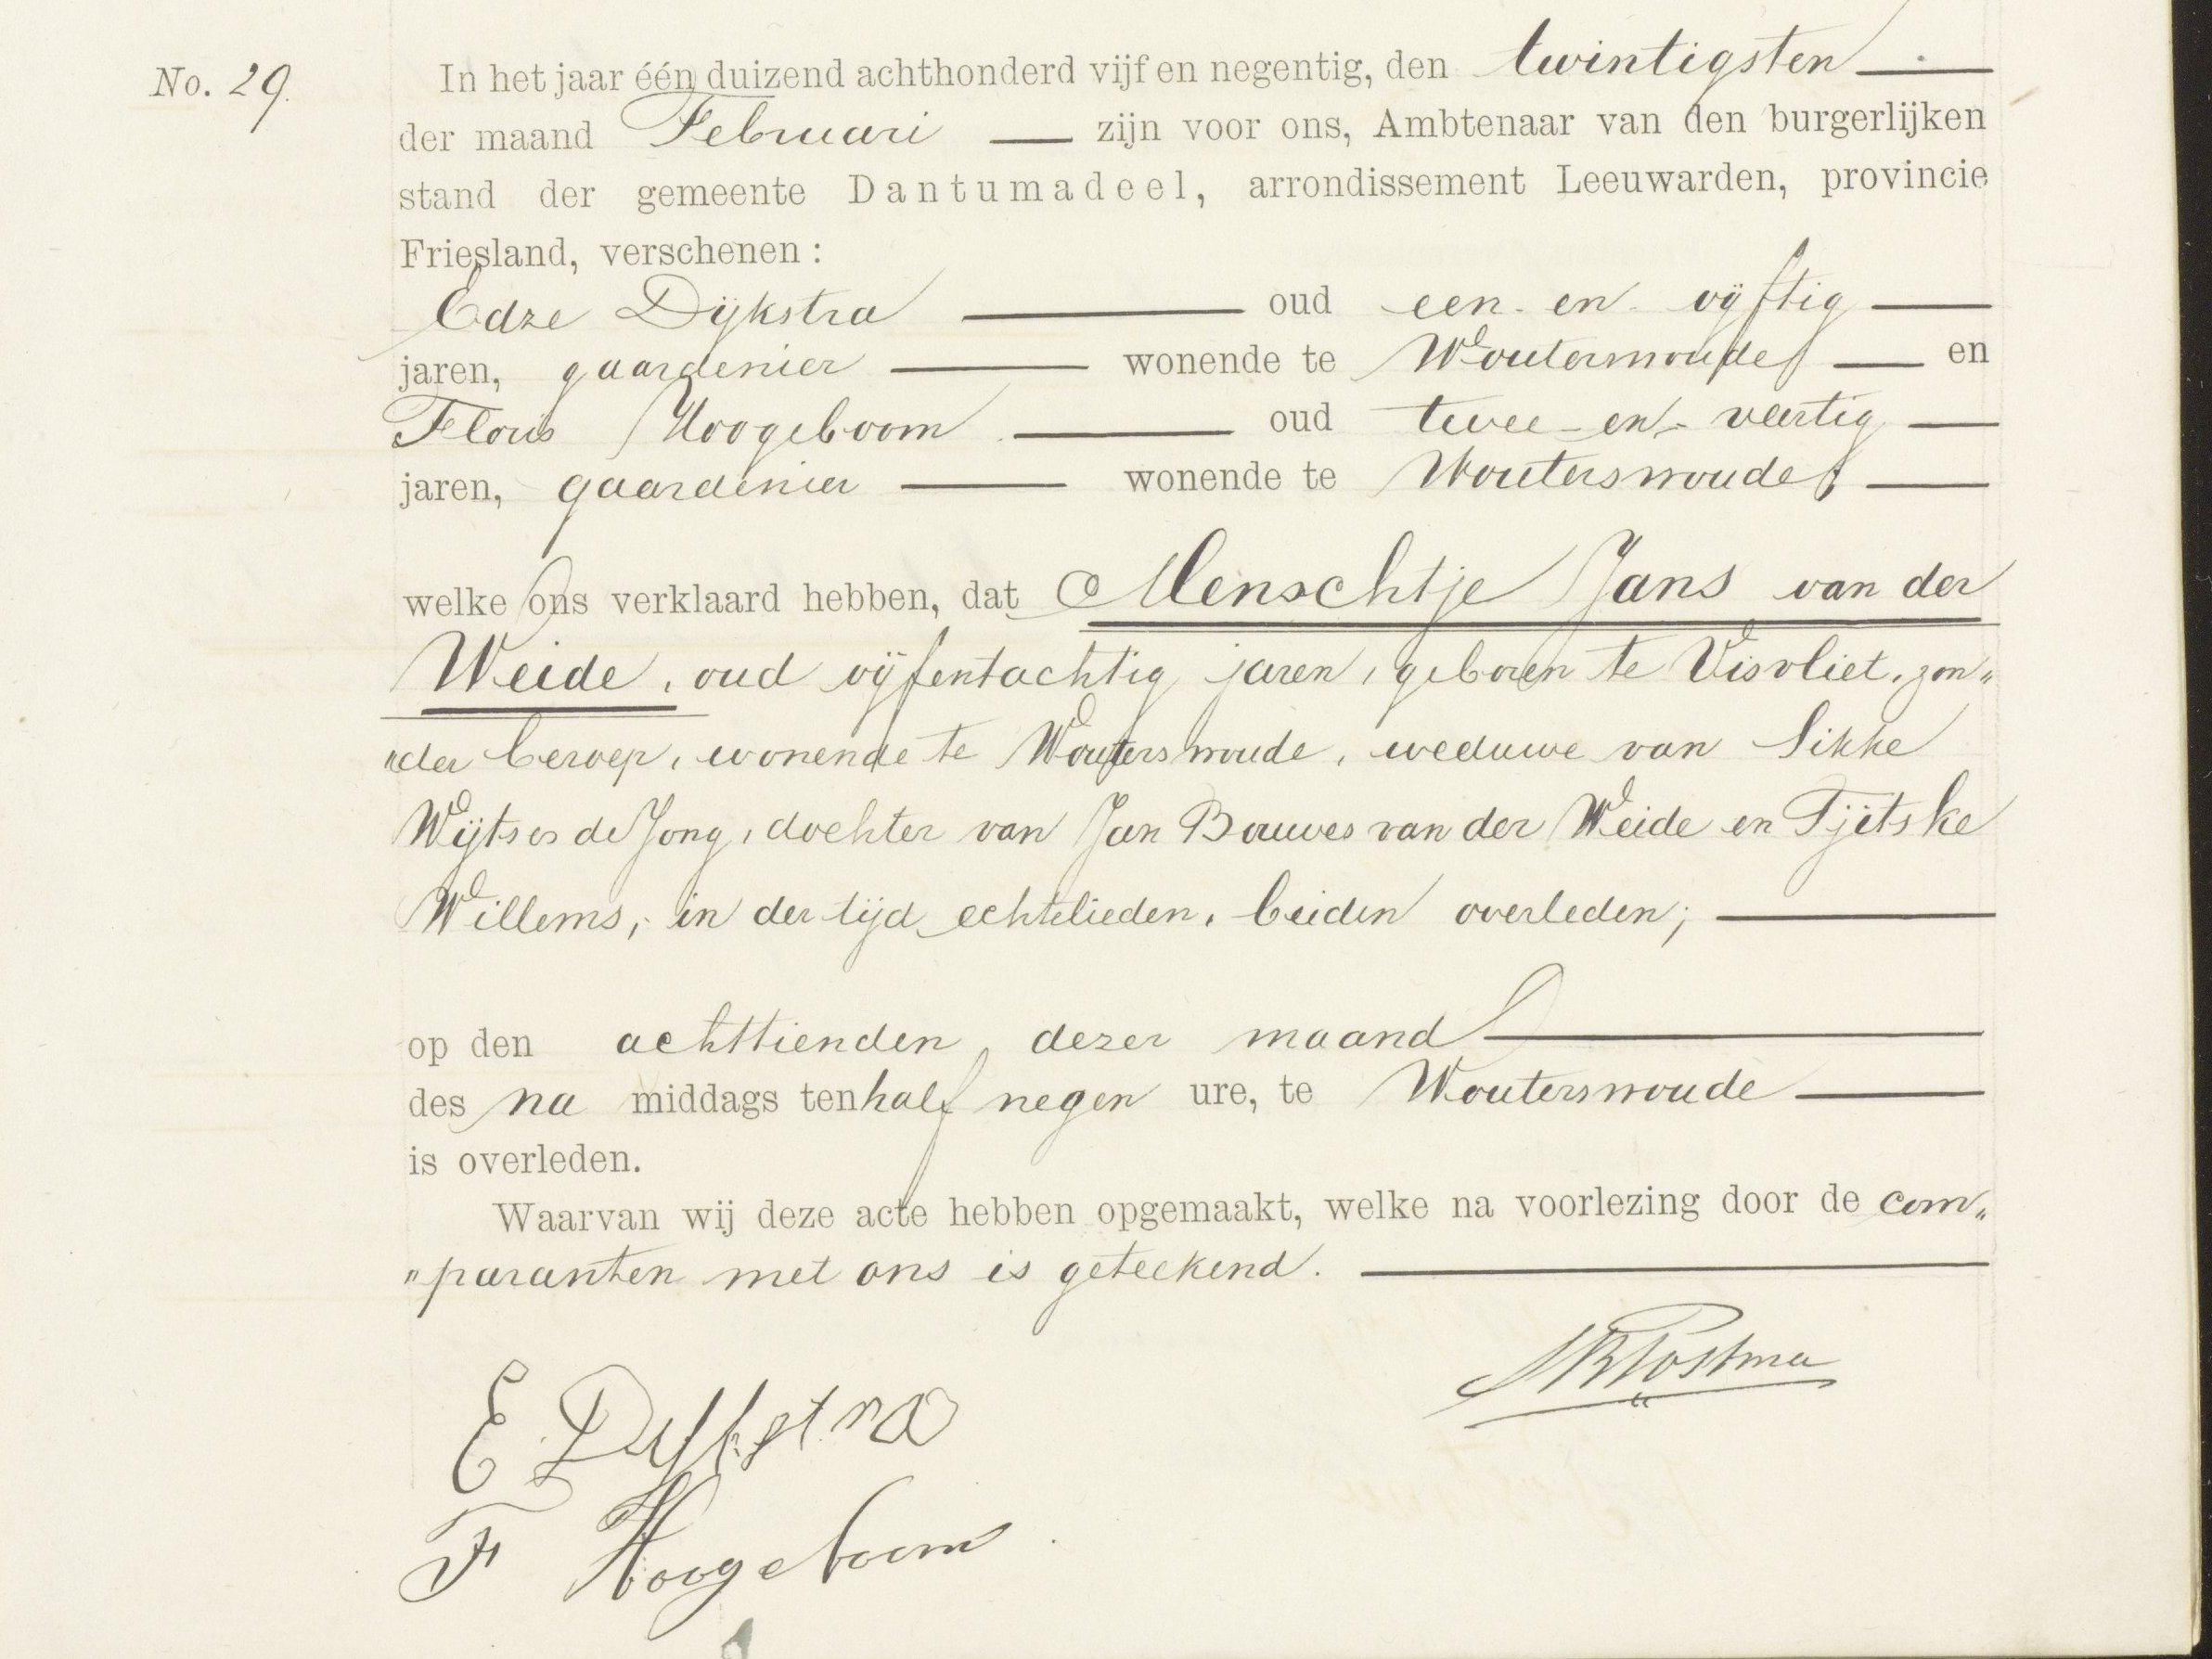 No. 29.
In het jaar één duizend achthonderd vijf en negentig, den twintigsten
der maand Februari zijn voor ons, Ambtenaar van den burgerlijken
stand der gemeente Dantumadeel, arrondissement Leeuwarden, provincie
Friesland, verschenen:
Edze Dijkstra oud een-en-vijftig
jaren, gaardenier wonende te Wouterswoude en
Floris Hoogeboom oud twee-en-veertig
jaren, gaardenier wonende te Wouterswoude
welke ons verklaard hebben, dat Menschtje Jans van der
Weide, oud vijfentachtig jaren, geboren te Visvliet, zon„
„der beroep, wonende te Wouterswoude, weduwe van Sikke
Wijtses de Jong, dochter van Jan Bouwes van der Weide en Tjitske
Willems, in der tijd echtelieden, beiden overleden;
op den achttienden dezer maand
des na middags ten half negen ure, te Wouterswoude
is overleden.
Waarvan wij deze acte hebben opgemaakt, welke na voorlezing door de com„
„paranten met ons is geteekend.
Postma
E Dijkstra
F Hoogeboom